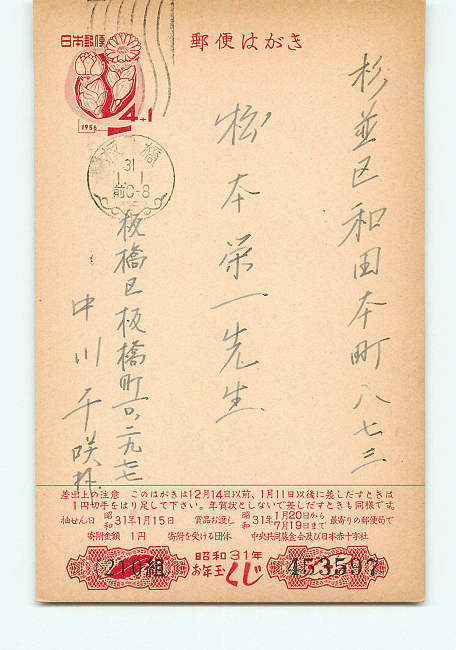 日本郵便
郵便はがき
4+1
1956
板橋
31
1.1
前0-8
杉並区和田本町八七三
松本栄一先生
板橋区板橋町
中川千咲
差出上の注意 このはがきは12月14日以前、1月11日以後に差しだすときは
1円切手をはり足して下さい。年賀状としないで差しだすときも同様です。
抽せん日 昭和31年1月15日 賞品お渡し 昭和31年1月20日から7月19日まで 最寄りの郵便局で
寄附金額 1円 寄附を受ける団体 中央共同募金会及び日本赤十字社
昭和31年
お年玉くじ
210組
453597